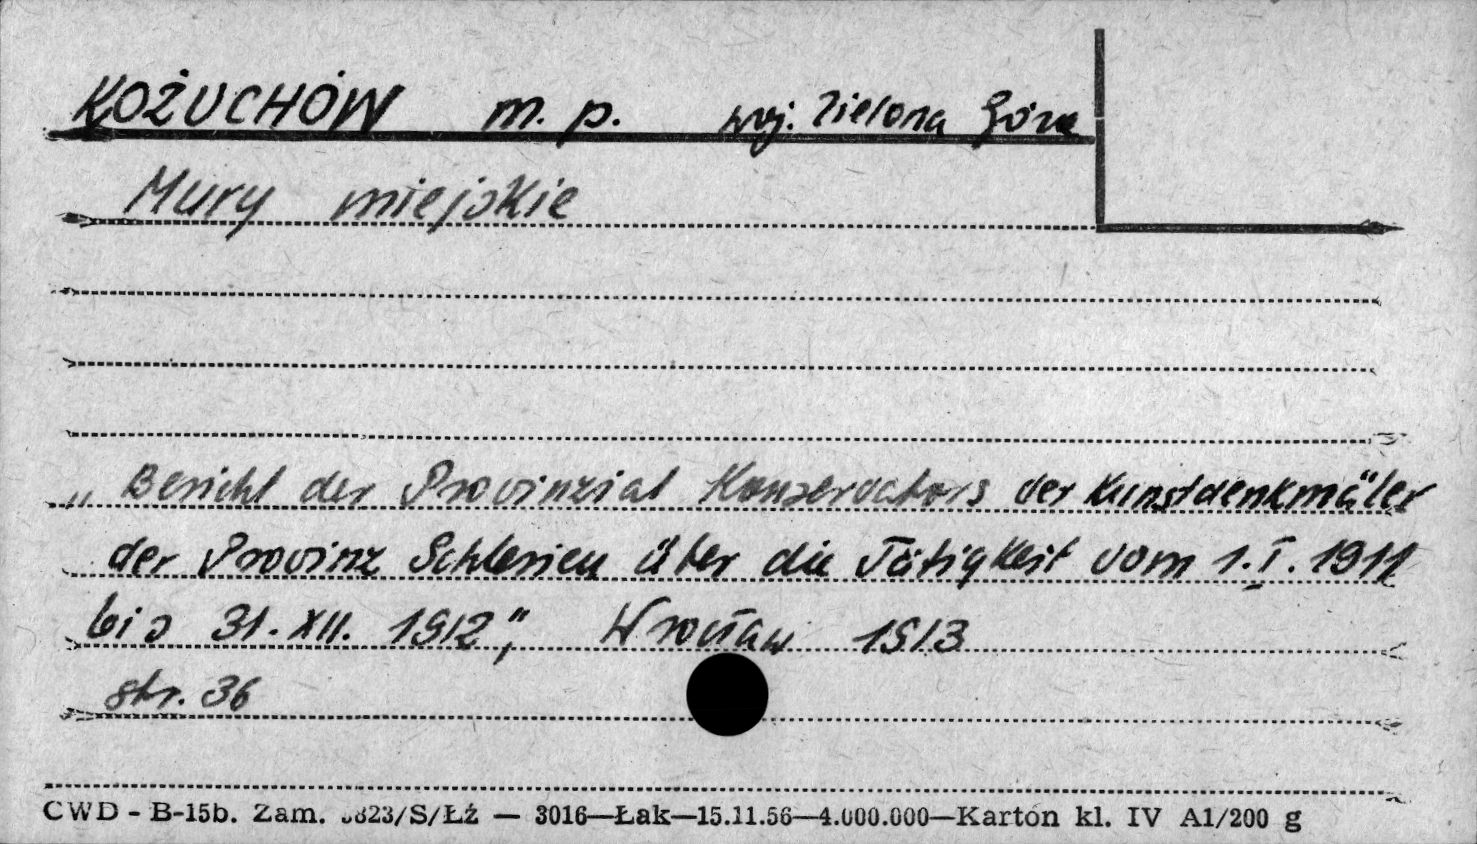 KOŻUCHÓW m. p. woj. Zielona Góra
Mury miejskie
„Bericht der Provinzial Konservators der Kunstdenkmäler
der Provinz Schlesien über die Tätigkeit vom 1.I.1911
bis 31.XII. 1912", Wrocław 1913
str. 36
CWD - B-15b. Zam. 823/S/Łź — 3016—Łak—15.11.56—4.000.000—Karton kl. IV A1/200 g